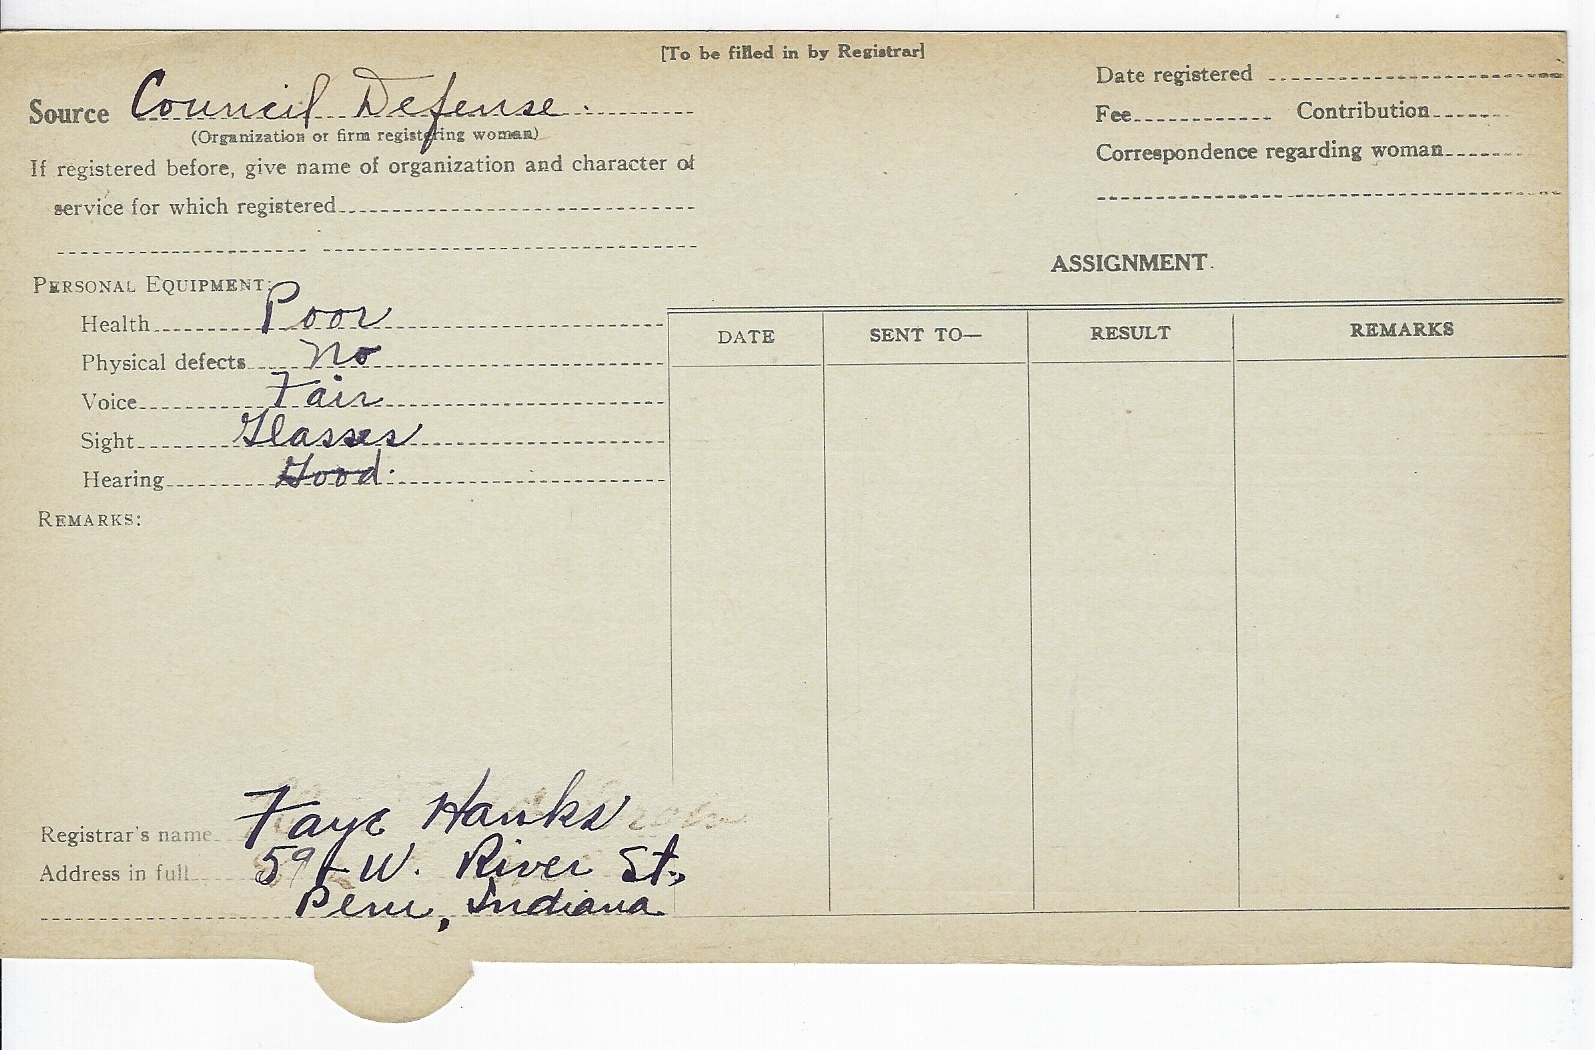 [To be filled in by Registrar]
Source Council Defense.
(Organization or firm registering woman)
If registered before, give name of organization and character of
service for which registered
Date registered
Fee Contribution
Correspondence regarding woman
PERSONAL EQUIPMENT:
Health Poor
Physical defects No
Voice Fair
Sight Glasses
Hearing Good.
REMARKS:
ASSIGNMENT.
DATE SENT TO— RESULT REMARKS
Registrar's name Faye Hanks
Address in full W. River St.,
Peru, Indiana